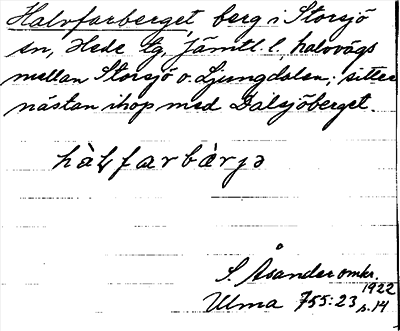 Halvfarberget, berg i Storsjö
sn, Hede tg, Jämtl. l. halvvägs
mellan Storsjö o. Ljungdalen; sitter
nästan ihop med Dalsjöberget.
hàlfarbàrjə
S. Åsander omkr.
1922
Ulma 755:23 s. 14